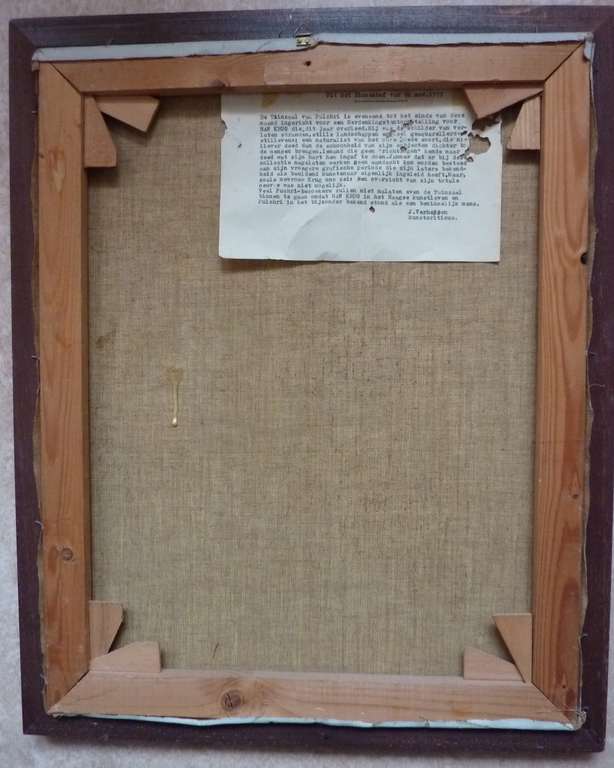 Uit het Binnenhof van 24 nov.1977
De Tuinzaal van Pulchri is eveneens tot het einde van deze
maand ingericht voor een Herdenkingstentoonstelling voor
HAN KRUG die, dit jaar overleed. Hij was de schilder van ver-
laten stranden, stille landschappen en veel geaquarelleerde
stillevens; een naturalist van het soort, die
liever deed dan de schoonheid van zijn objecten dichter bij
de mensen brengen. Iemand die geen "richtingen" kende maar
deed wat zijn hart hem ingaf te doen. Jammer dat er bij deze
collectie nagelaten werken geen aandacht kon worden besteed
aan zijn vroegere grafische periode die zijn latere bekend-
heid als beeldend kunstenaar eigenlijk ingeluid heeft. Maar,
zoals mevrouw Krug zei zelf: Een overzicht van zijn totale
oeuvre was niet mogelijk.
Veel Puchri-bezoekers zullen niet nalaten even de Tuinzaal
binnen te gaan omdat HAN KRUG in het Haagse kunstleven en
Pulchri in het bijzonder bekend stond als een beminnelijk mens.
J. Verheyen
kunstcriticus.